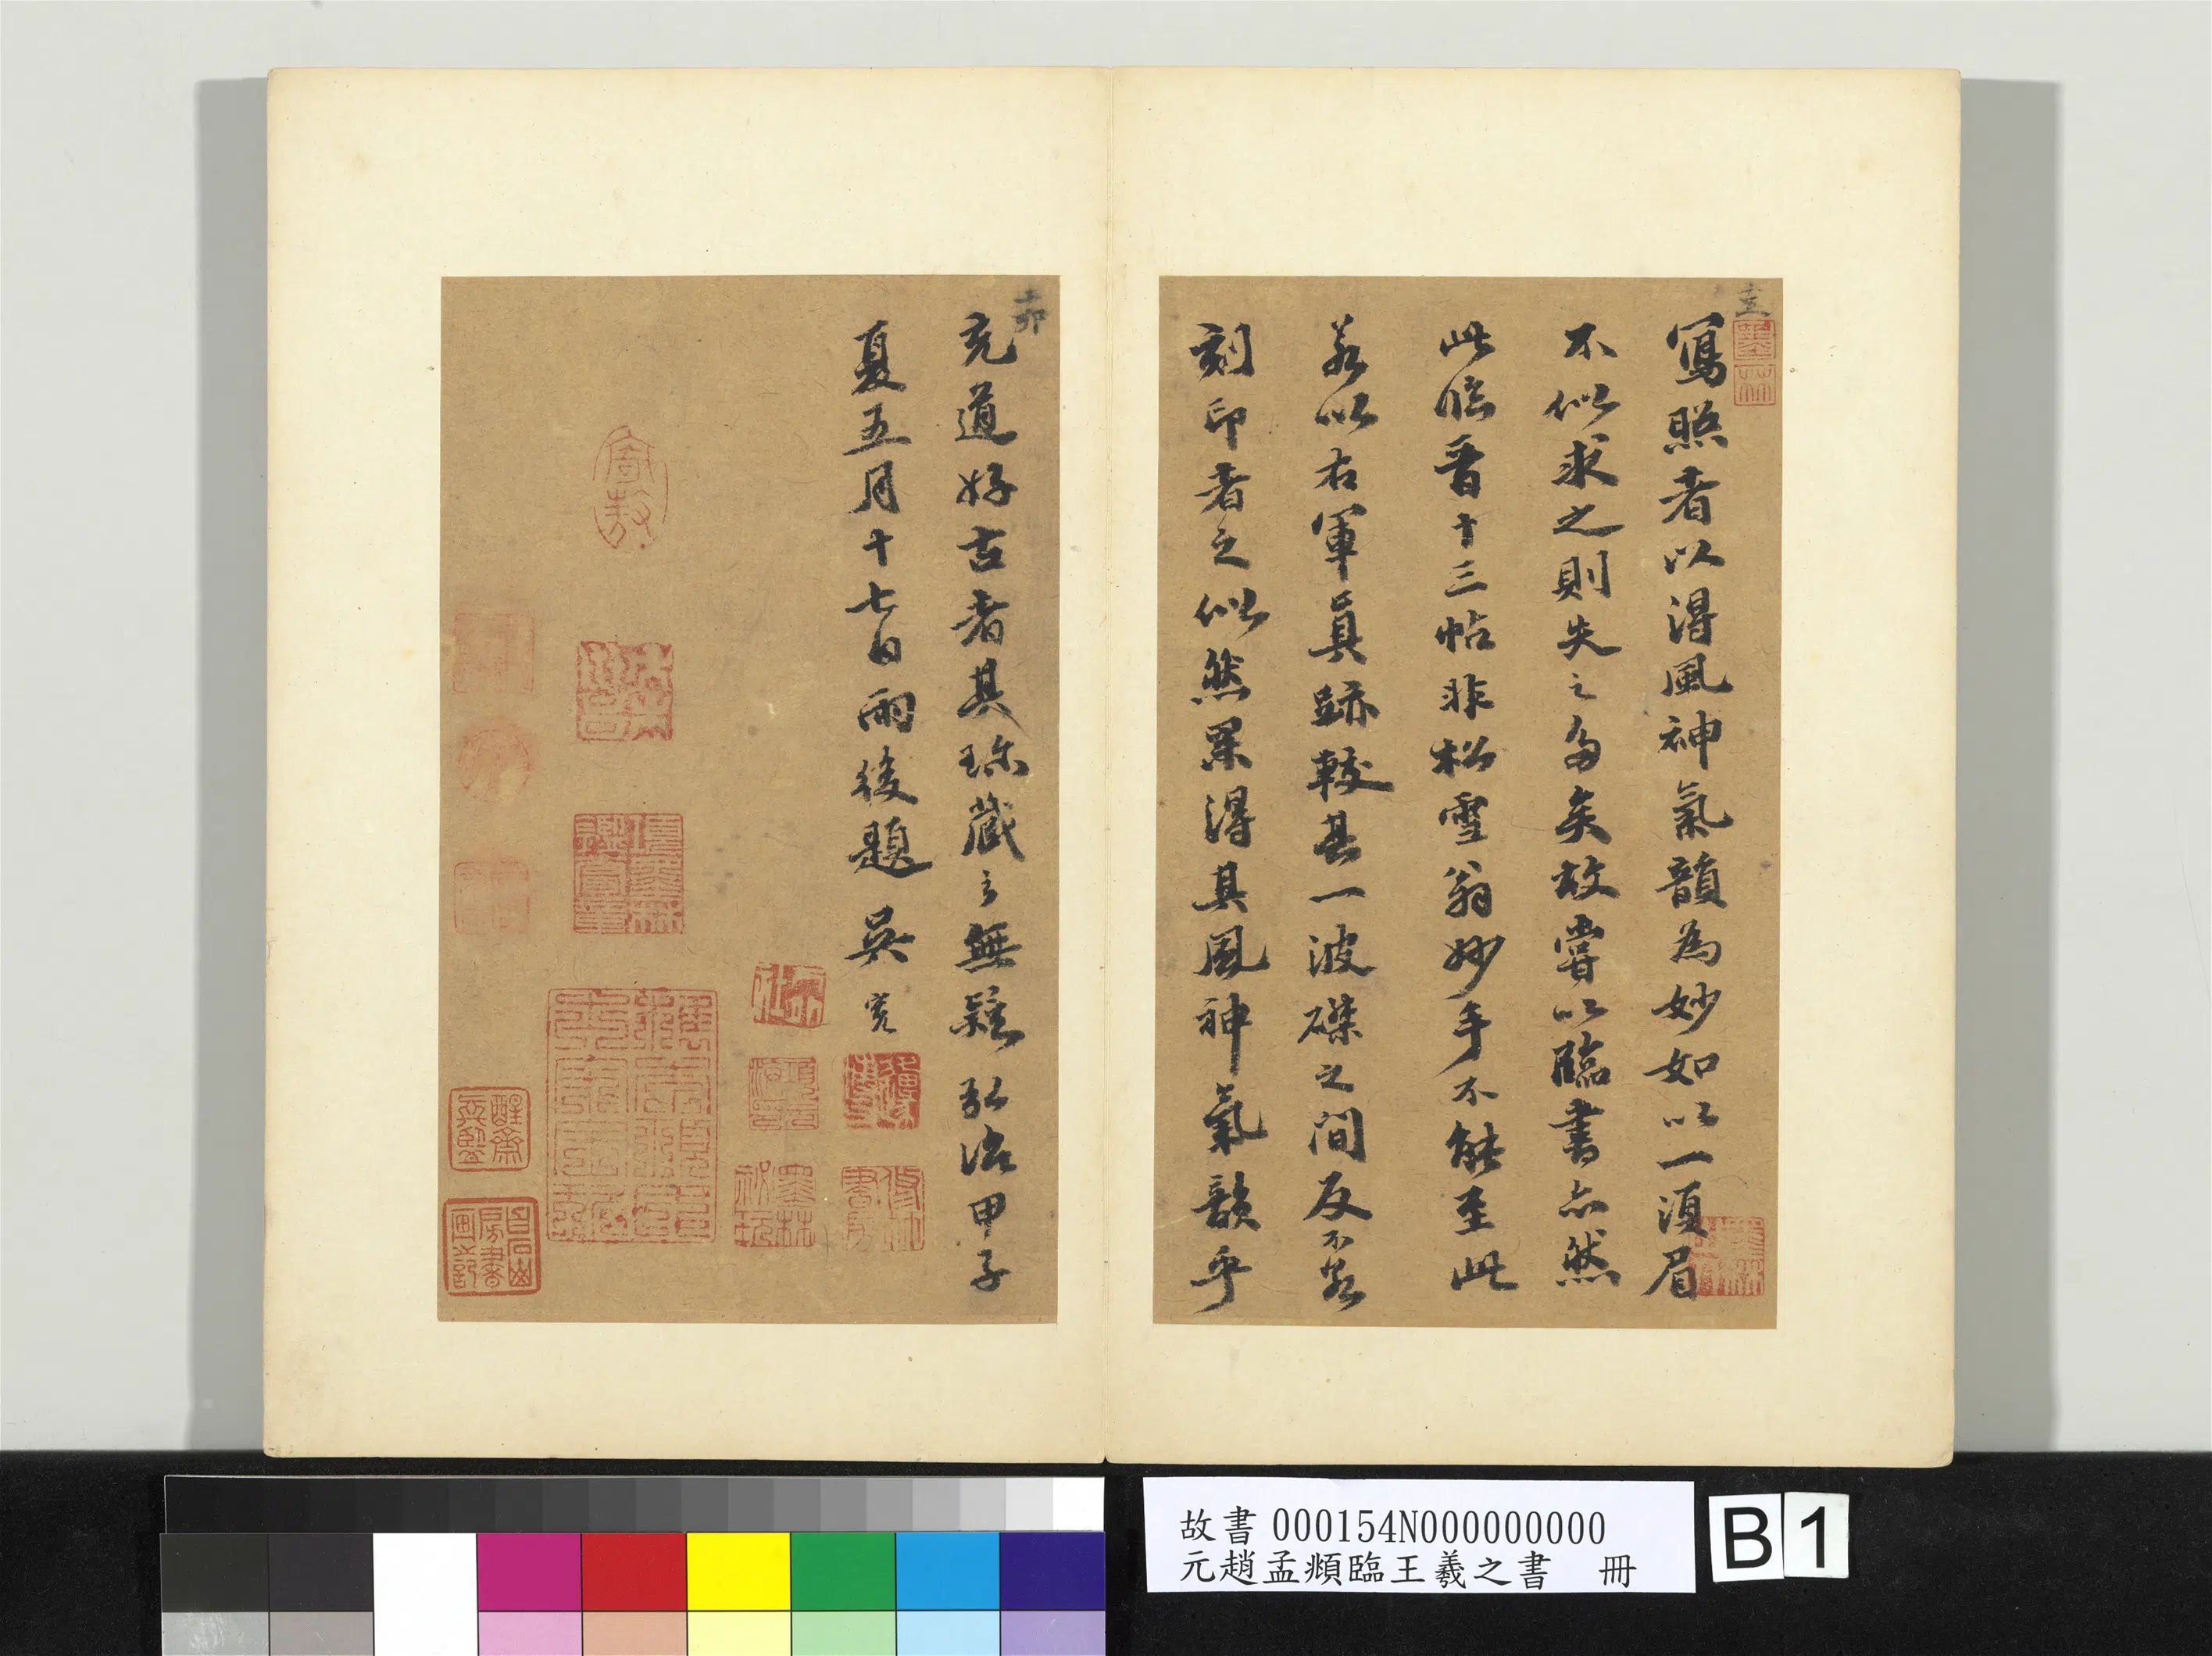 寫照者以得風神氣韻為妙如以一須眉
不似求之則失之多矣故嘗以臨書亦然
此臨晉十三帖非松雪翁妙手不能至此
若以右軍真跡較其一波磔之間反不若
刻印者之似然果得其風神氣韻乎
墨林
充道好古者其珍藏之無疑弘治甲子
夏五月十七日雨後題 吳寬
寄敖
項墨林鑑賞章
墨林秘玩
故書 000154N000000000
元趙孟頫臨王羲之書 冊
B1